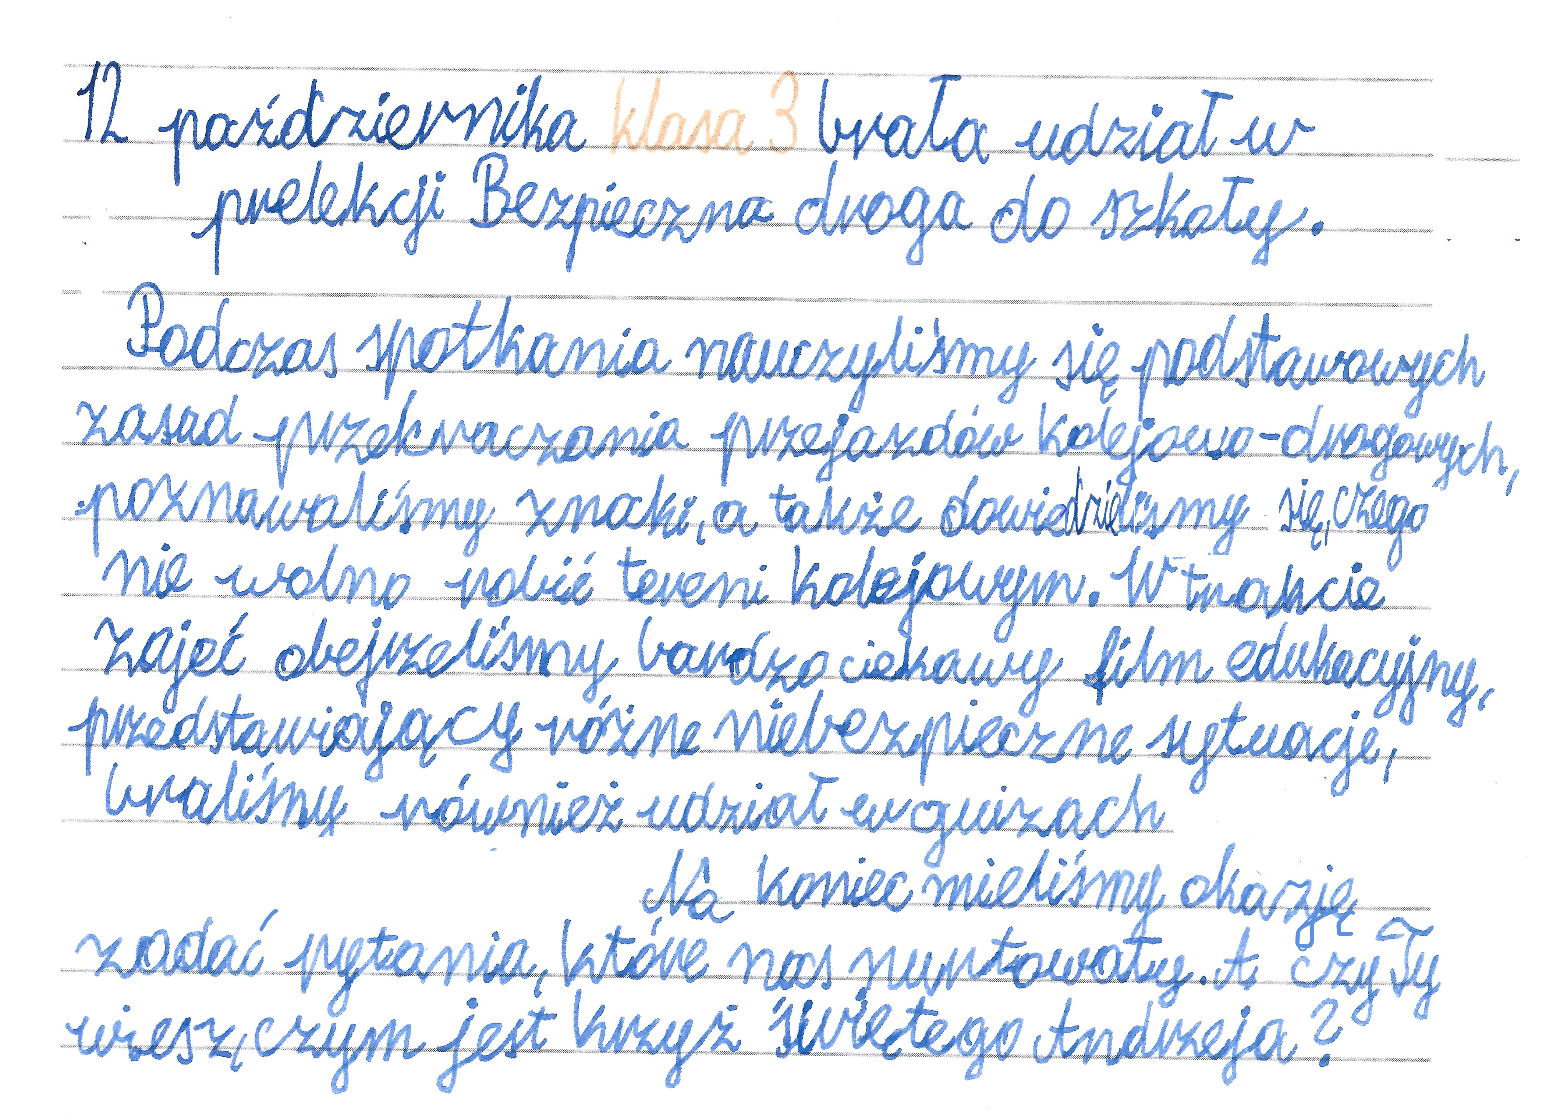 12 października klasa 3 brała udział w
prelekcji Bezpieczna droga do szkoły.
Podczas spotkania nauczyliśmy się podstawowych
zasad przekraczania przejazdów kolejowo-drogowych,
poznawaliśmy znaki, a także dowiedzieliśmy się, czego
nie wolno robić tereni kolejowym. W trakcie
zajęć obejrzeliśmy bardzo ciekawy film edukacyjny,
przedstawiający różne niebezpieczne sytuacje,
braliśmy również udział w quizach
Na koniec mieliśmy okazję
zadać pytania, które nas nurtowały. A czy Ty
wiesz, czym jest krzyż świętego Andrzeja?